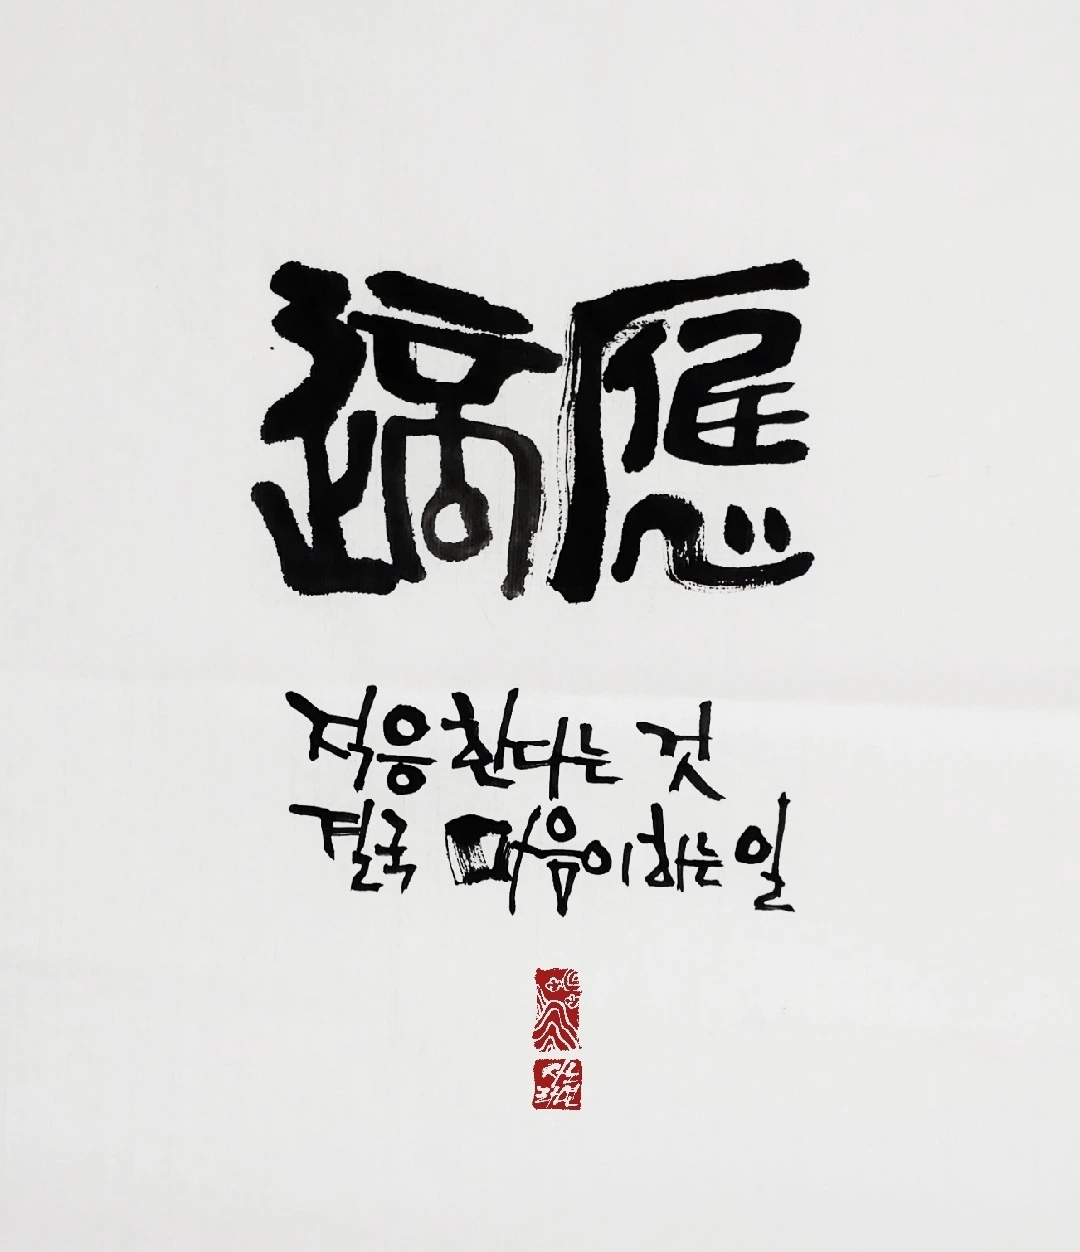 適應
적응한다는 것
결국 마음이 하는 일